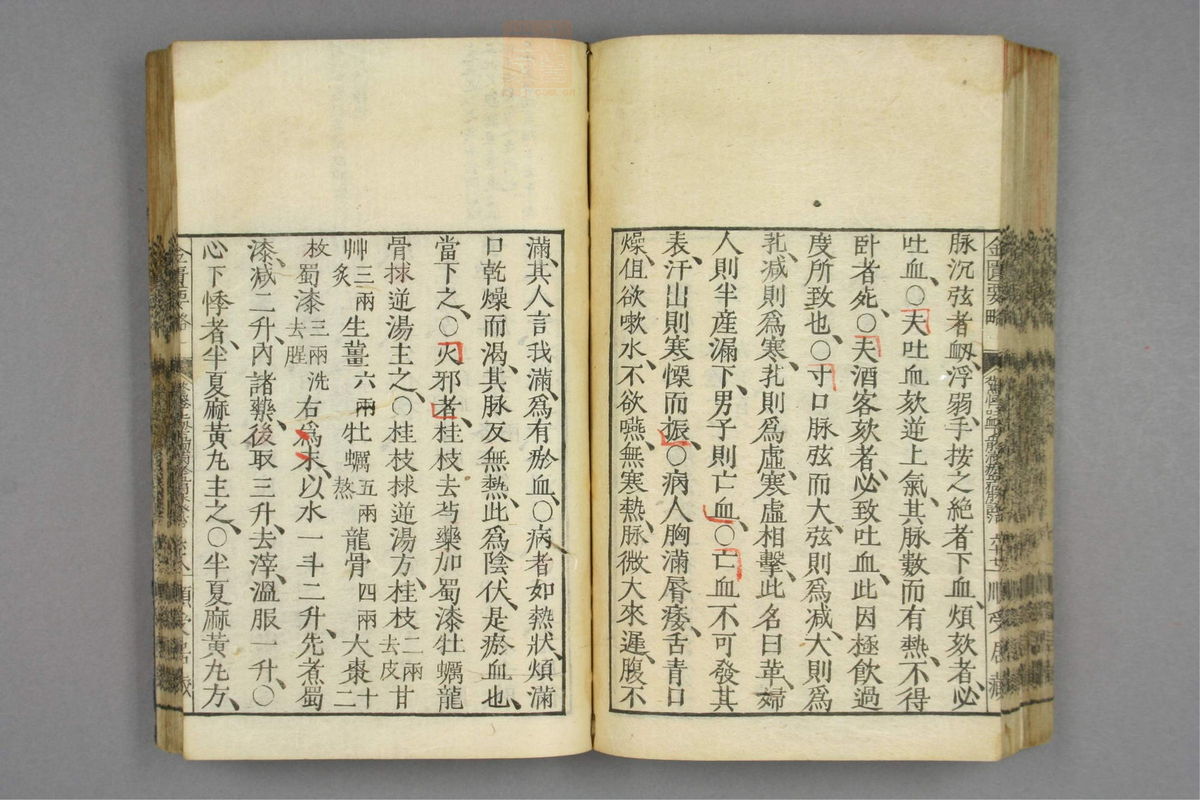 脉沉弦者衂、浮弱、手按之絕者下血、煩欬者、必
吐血、○夫吐血欬逆上氣、其脉數而有熱、不得
臥者死、○夫酒客欬者、必致吐血、此因極飮過
度所致也、○寸口脉弦而大、弦則爲减、大則爲
芤、减則爲寒、芤則爲虛、寒虛相擊、此名曰革、婦
人則半產漏下、男子則亡血、○亡血不可發其
表、汗出則寒慄而振、○病人胸滿、唇痿、舌青、口
燥、但欲嗽水、不欲嚥、無寒熱、脉微大來遲、腹不
滿、其人言我滿、爲有瘀血、○病者如熱狀、煩滿
口乾燥而渴、其脉反無熱、此爲陰伏、是瘀血也、
當下之、○火邪者、桂枝去芍藥加蜀漆牡蠣龍
骨捄逆湯主之、○桂枝捄逆湯方、桂枝二兩去皮甘
艸三兩炙生薑六兩牡蠣五兩熬龍骨四兩大棗十二
枚蜀漆三兩洗去腥右爲末、以水一斗二升、先煮蜀
漆、减二升、內諸藥、後取三升、去滓、溫服一升、○
心下悸者、半夏麻黃丸主之、○半夏麻黃丸方、